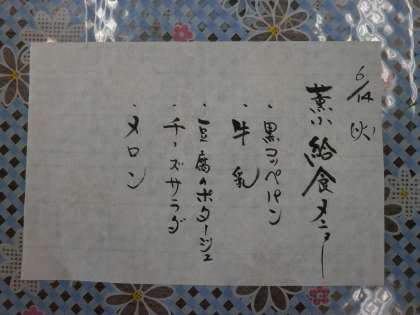 6/14(火)
薫小給食メニュー
・黒コッペパン
・牛乳
・豆腐のポタージュ
・チーズサラダ
・メロン